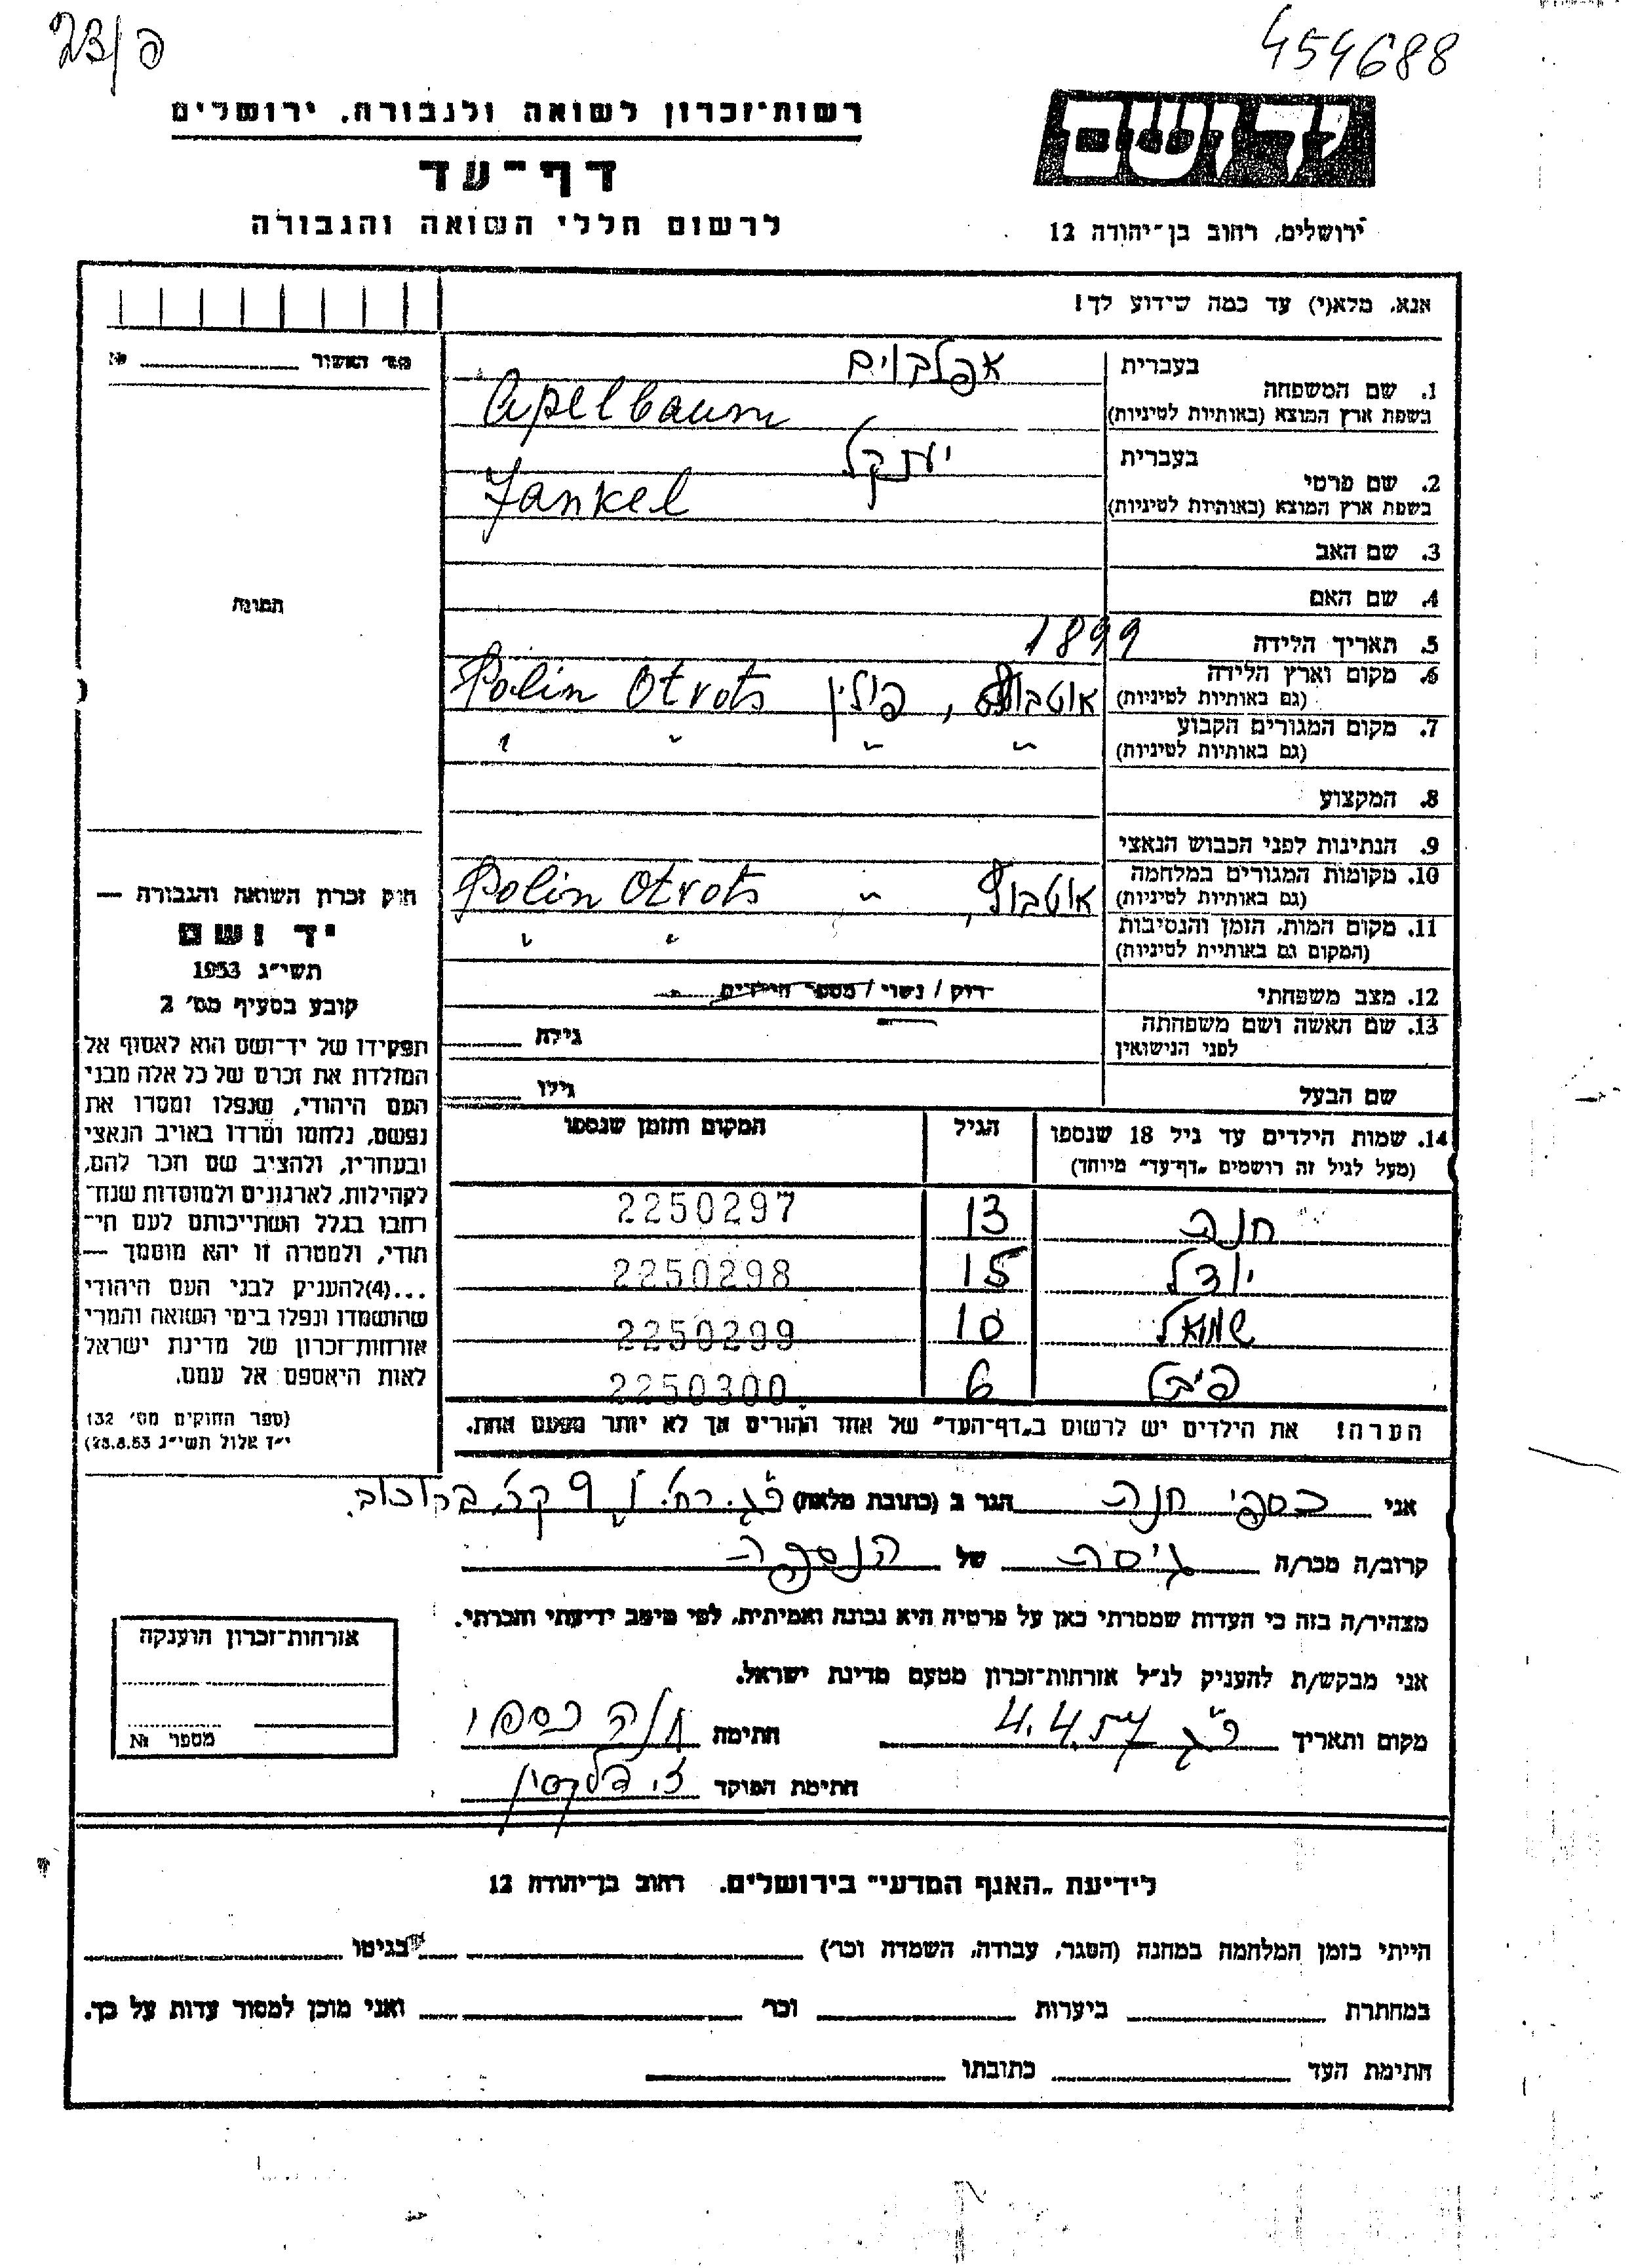 פ/23
454688
ידושם
רשות־זכרון לשואה ולגבורה, ירושלים
דף־עד
לרשום חללי השואה והגבורה
ירושלים, רחוב בן־יהודה 12
אנא, מלא(י) עד כמה שידוע לך!
מס׳ האשור №
תמונה
בעברית אפלבוים
1. שם המשפחה
בשפת ארץ המוצא (באותיות לטיניות) Apelbaum
בעברית יענקל
2. שם פרטי
בשפת ארץ המוצא (באותיות לטיניות) Jankel
3. שם האב
4. שם האם
5. תאריך הלידה 1899
6. מקום וארץ הלידה
(גם באותיות לטיניות) פולין Polin Otvots
7. מקום המגורים הקבוע
(גם באותיות לטיניות) " " " "
8. המקצוע
9. הנתינות לפני הכבוש הנאצי
10. מקומות המגורים במלחמה
(גם באותיות לטיניות) אוטבוצק, " Polin Otvots
11. מקום המות, הזמן והנסיבות
(המקום גם באותיות לטיניות) " "
12. מצב משפחתי רוק / נשוי / מספר הילדים
13. שם האשה ושם משפחתה
לפני הנישואין גילה
שם הבעל גילו
14. שמות הילדים עד גיל 18 שנספו הגיל המקום והזמן שנספו
(מעל לגיל זה רושמים „דף־עד" מיוחד)
חנה 13 2250297
יודל 15 2250298
שמואל 10 2250299
פיגל 6 2250300
הערה! את הילדים יש לרשום ב„דף־העד" של אחד ההורים אך לא יותר מפעם אחת.
חוק זכרון השואה והגבורה —
יד ושם
תשי״ג 1953
קובע בסעיף מס׳ 2
תפקידו של יד־ושם הוא לאסוף אל
המולדת את זכרם של כל אלה מבני
העם היהודי, שנפלו ומסרו את
נפשם, נלחמו ומרדו באויב הנאצי
ובעוזריו, ולהציב שם וזכר להם,
לקהילות, לארגונים ולמוסדות שנח־
רבו בגלל השתייכותם לעם הי־
הודי, ולמטרה זו יהא מוסמך —
...(4)להעניק לבני העם היהודי
שהושמדו ונפלו בימי השואה והמרי
אזרחות־זכרון של מדינת ישראל
לאות היאספם אל עמם.
(ספר החוקים מס׳ 132
י״ז אלול תשי״ג 28.8.53)
אני כספי חנה הגר ב (כתובת מלאה) ר״ג
קרוב/ה מכר/ה גיסה של הנספה
מצהיר/ה בזה כי העדות שמסרתי כאן על פרטיה היא נכונה ואמיתית, לפי מיטב ידיעתי והכרתי.
אני מבקש/ת להעניק לנ״ל אזרחות־זכרון מטעם מדינת ישראל.
מקום ותאריך ר״ג 4.4.57 חתימת חנה כספי
חתימת הפוקד
אזרחות־זכרון הוענקה
מספר №
לידיעת „האגף המדעי" בירושלים. רחוב בן־יהודה 12
הייתי בזמן המלחמה במחנה (הסגר, עבודה, השמדה וכו׳) בגיטו
במחתרת ביערות וכו׳ ואני מוכן למסור עדות על כך.
חתימת העד כתובתו